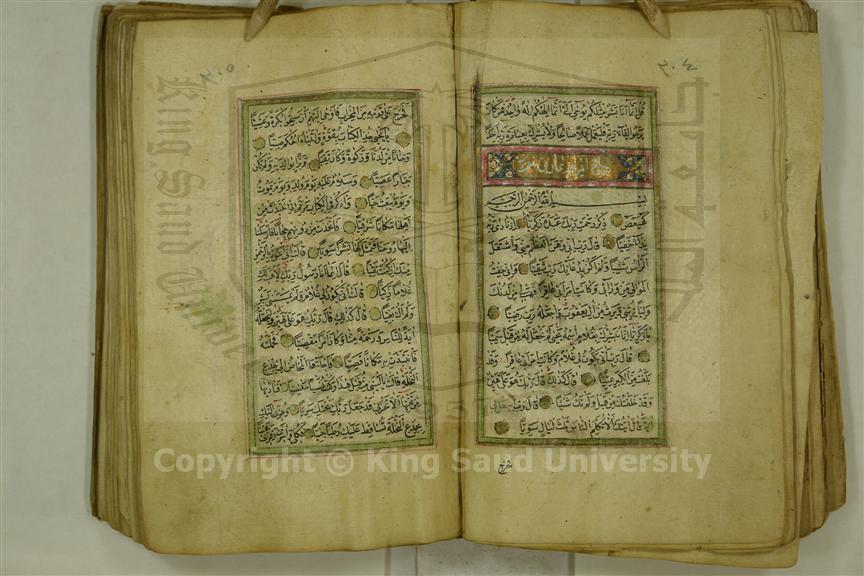 ٢٠٤
قل انما انا بشر مثلكم يوحى الي انما الهكم اله واحد فمن كان
يرجوا لقاء ربه فليعمل عملا صالحا ولا يشرك بعبادة ربه احدا
بسم الله الرحمن الرحيم
كهيعص ذكر رحمت ربك عبده زكريا اذ نادى ربه
نداء خفيا قال رب اني وهن العظم مني واشتعل
الراس شيبا ولم اكن بدعائك رب شقيا واني خفت
الموالي من ورائي وكانت امراتي عاقرا فهب لي من لدنك
وليا يرثني ويرث من ال يعقوب واجعله رب رضيا
يا زكريا انا نبشرك بغلام اسمه يحيى لم نجعل له من قبل سميا
قال رب انى يكون لي غلام وكانت امراتي عاقرا وقد
بلغت من الكبر عتيا قال كذلك قال ربك هو علي هين
وقد خلقتك من قبل ولم تك شيئا قال رب اجعل لي
اية قال ايتك الا تكلم الناس ثلث ليال سويا
فخرج
٢٠٥
فخرج على قومه من المحراب فاوحى اليهم ان سبحوا بكرة وعشيا
يا يحيى خذ الكتاب بقوة واتيناه الحكم صبيا
وحنانا من لدنا وزكوة وكان تقيا وبرا بوالديه ولم يكن
جبارا عصيا وسلام عليه يوم ولد ويوم يموت
ويوم يبعث حيا واذكر في الكتاب مريم اذ انتبذت من
اهلها مكانا شرقيا فاتخذت من دونهم حجابا فارسلنا
اليها روحنا فتمثل لها بشرا سويا قالت اني اعوذ بالرحمن
منك ان كنت تقيا قال انما انا رسول ربك لاهب لك
غلاما زكيا قالت انى يكون لي غلام ولم يمسسني بشر
ولم اك بغيا قال كذلك قال ربك هو علي هين ولنجعله
اية للناس ورحمة منا وكان امرا مقضيا فحملته
فانتبذت به مكانا قصيا فاجاءها المخاض الى جذع
النخلة قالت يا ليتني مت قبل هذا وكنت نسيا منسيا فناديها
من تحتها الا تحزني قد جعل ربك تحتك سريا وهزي اليك
بجذع النخلة تساقط عليك رطبا جنيا فكلي واشربي وقري
Copyright © King Saud University
King Saud University
جامعة الملك سعود
1957